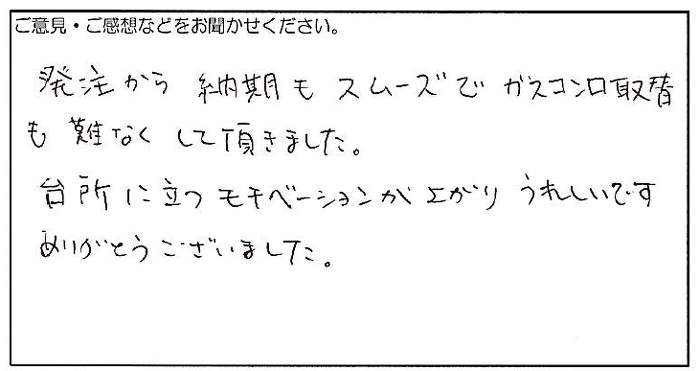 ご意見・ご感想などをお聞かせください。
発注から 納期も スムーズで ガスコンロ取替
も 難なく して頂きました。
台所に立つ モチベーションが 上がり うれしいです
ありがとうございました。